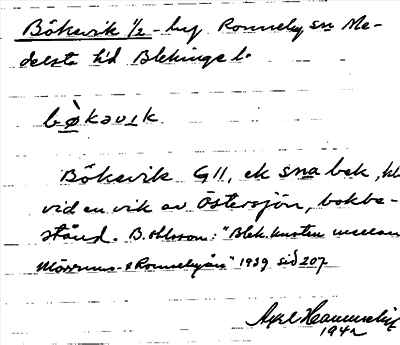 Bökevik 1/2 - by Ronneby sn Me-
delsta hd Blekinge l.
bø̀kəvɪk
Bökevik G11, ek sna bek, kl
vid en vik av Östersjön, bokbe-
stånd. B. Ohlsson: "Blek. kusten mellan
Mörrums- o Ronnebyån" 1939 sid 207
Axel
1942